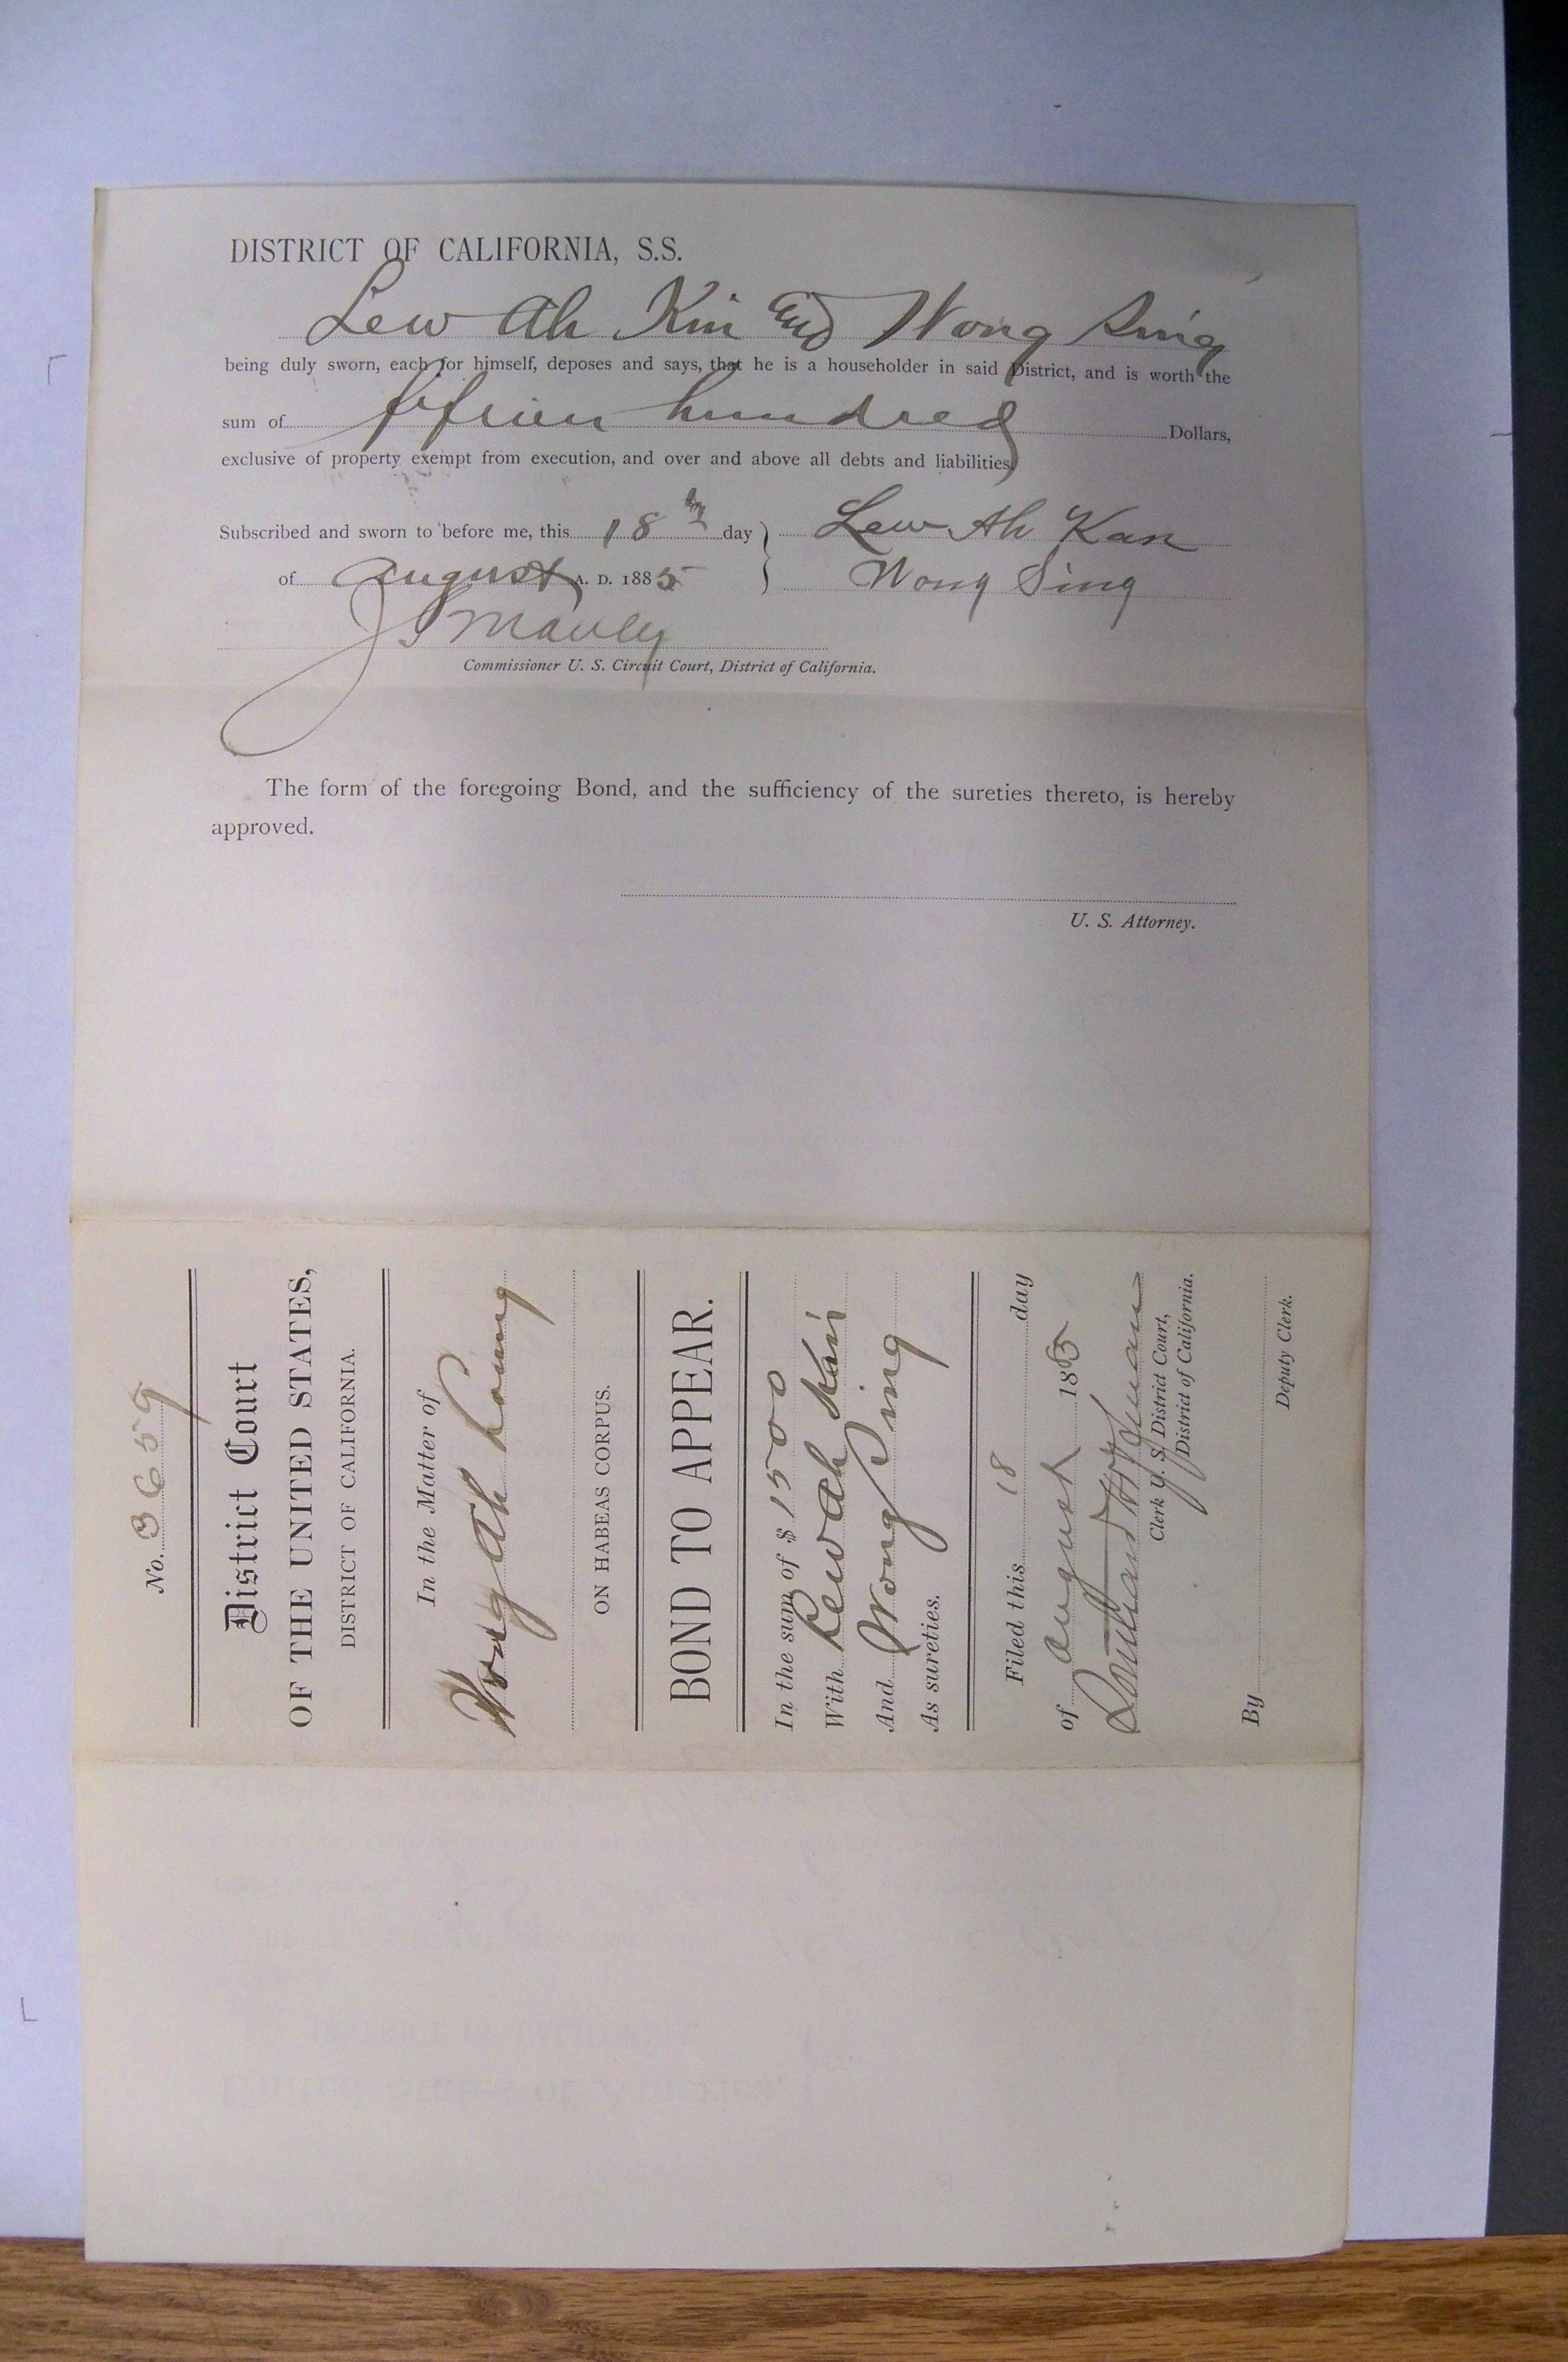 DISTRICT OF CALIFORNIA, S.S.
Lew Ah Kin and Wong Sing
being duly sworn, each for himself, deposes and says, that he is a householder in said District, and is worth the
sum of fifteen hundred Dollars,
exclusive of property exempt from execution, and over and above all debts and liabilities.
Subscribed and sworn to before me, this 18th day
of August A. D. 1885
Lew Ah Kan
Wong Sing
J S Manley
Commissioner U. S. Circuit Court, District of California.
The form of the foregoing Bond, and the sufficiency of the sureties thereto, is hereby
approved.
U. S. Attorney.
No. 3659
District Court
OF THE UNITED STATES,
DISTRICT OF CALIFORNIA.
In the Matter of
Wong Ah
ON HABEAS CORPUS.
BOND TO APPEAR.
In the sum of $ 1500
With Lew Ah Kin
And Wong Sing
As sureties.
Filed this 18 day
of August 1885
Southard Hoffman
Clerk U. S. District Court,
District of California.
By
Deputy Clerk.